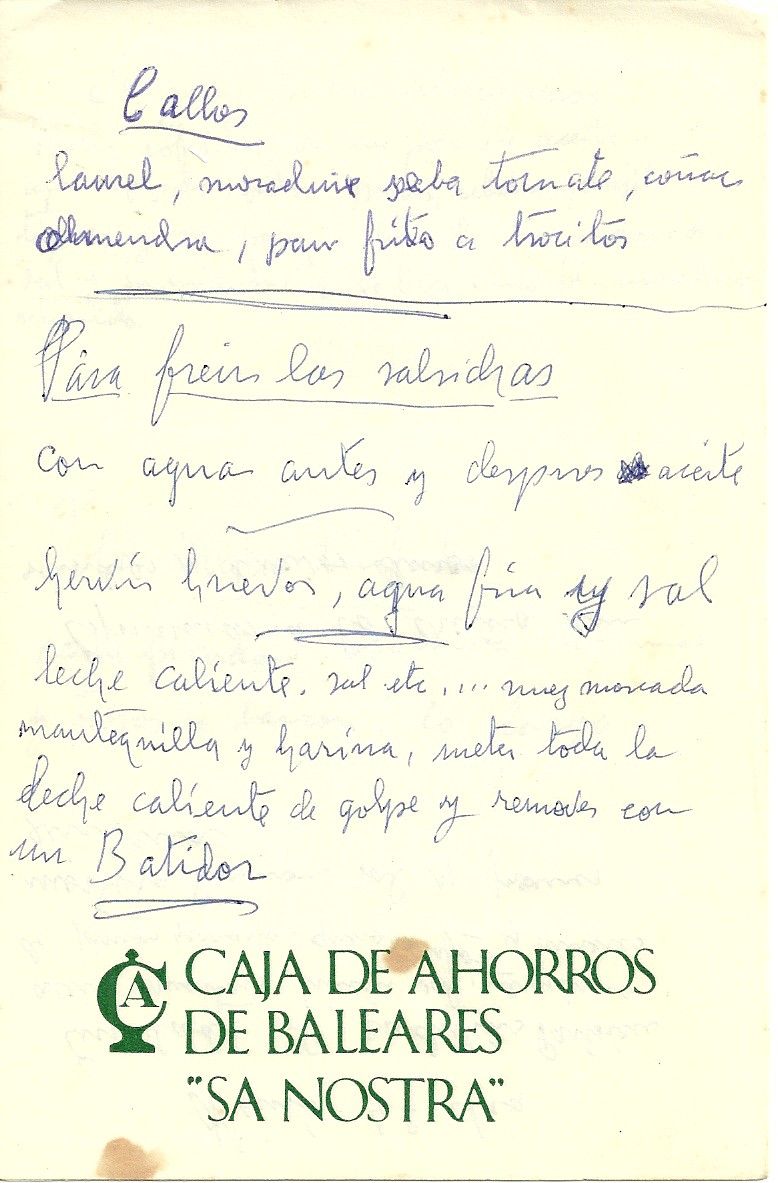 Callos
laurel, moraduix seba tomate, coñac
almendra, pan frito a trocitos
Para freir las salsichas
con agua antes y despues aceite
hervir huevos, agua fria y sal
leche caliente. sal etc.... nuez moscada
mantequilla y harina, meter toda la
leche caliente de golpe y remover con
un Batidor
CA CAJA DE AHORROS
DE BALEARES
"SA NOSTRA"